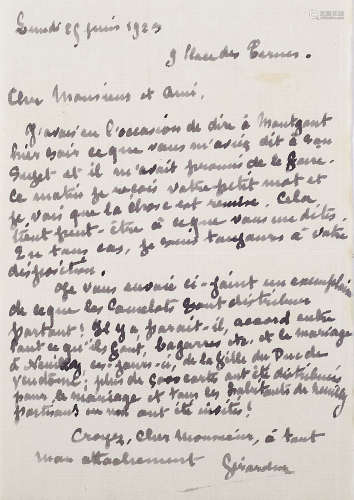 Lundi 25 juin 1923
9 Place des Ternes.
Cher Monsieur et ami,
J'avais eu l'occasion de dire à
hier soir ce que vous m'aviez dit à son
sujet et il m'avait promis de le faire.
Ce matin je reçois votre petit mot et
je vois que la chose est remise. Cela
tient peut-être à ce que vous me dites.
En tous cas, je suis toujours à votre
disposition.
Je vous envoie ci-joint un exemplaire
de ce que les Camelots font distribuer
partout! Il y a parait-il, accord entre
tout ce qu'ils font, bagarres etc. et le mariage
à Neuilly ces jours-ci, de la fille du Duc de
Vendôme: plus de 5000 cartes ont été distribuées
pour le mariage et tous les habitants de Neuilly
partisans ou non ont été invités!
Croyez, Cher Monsieur, à tout
mon attachement